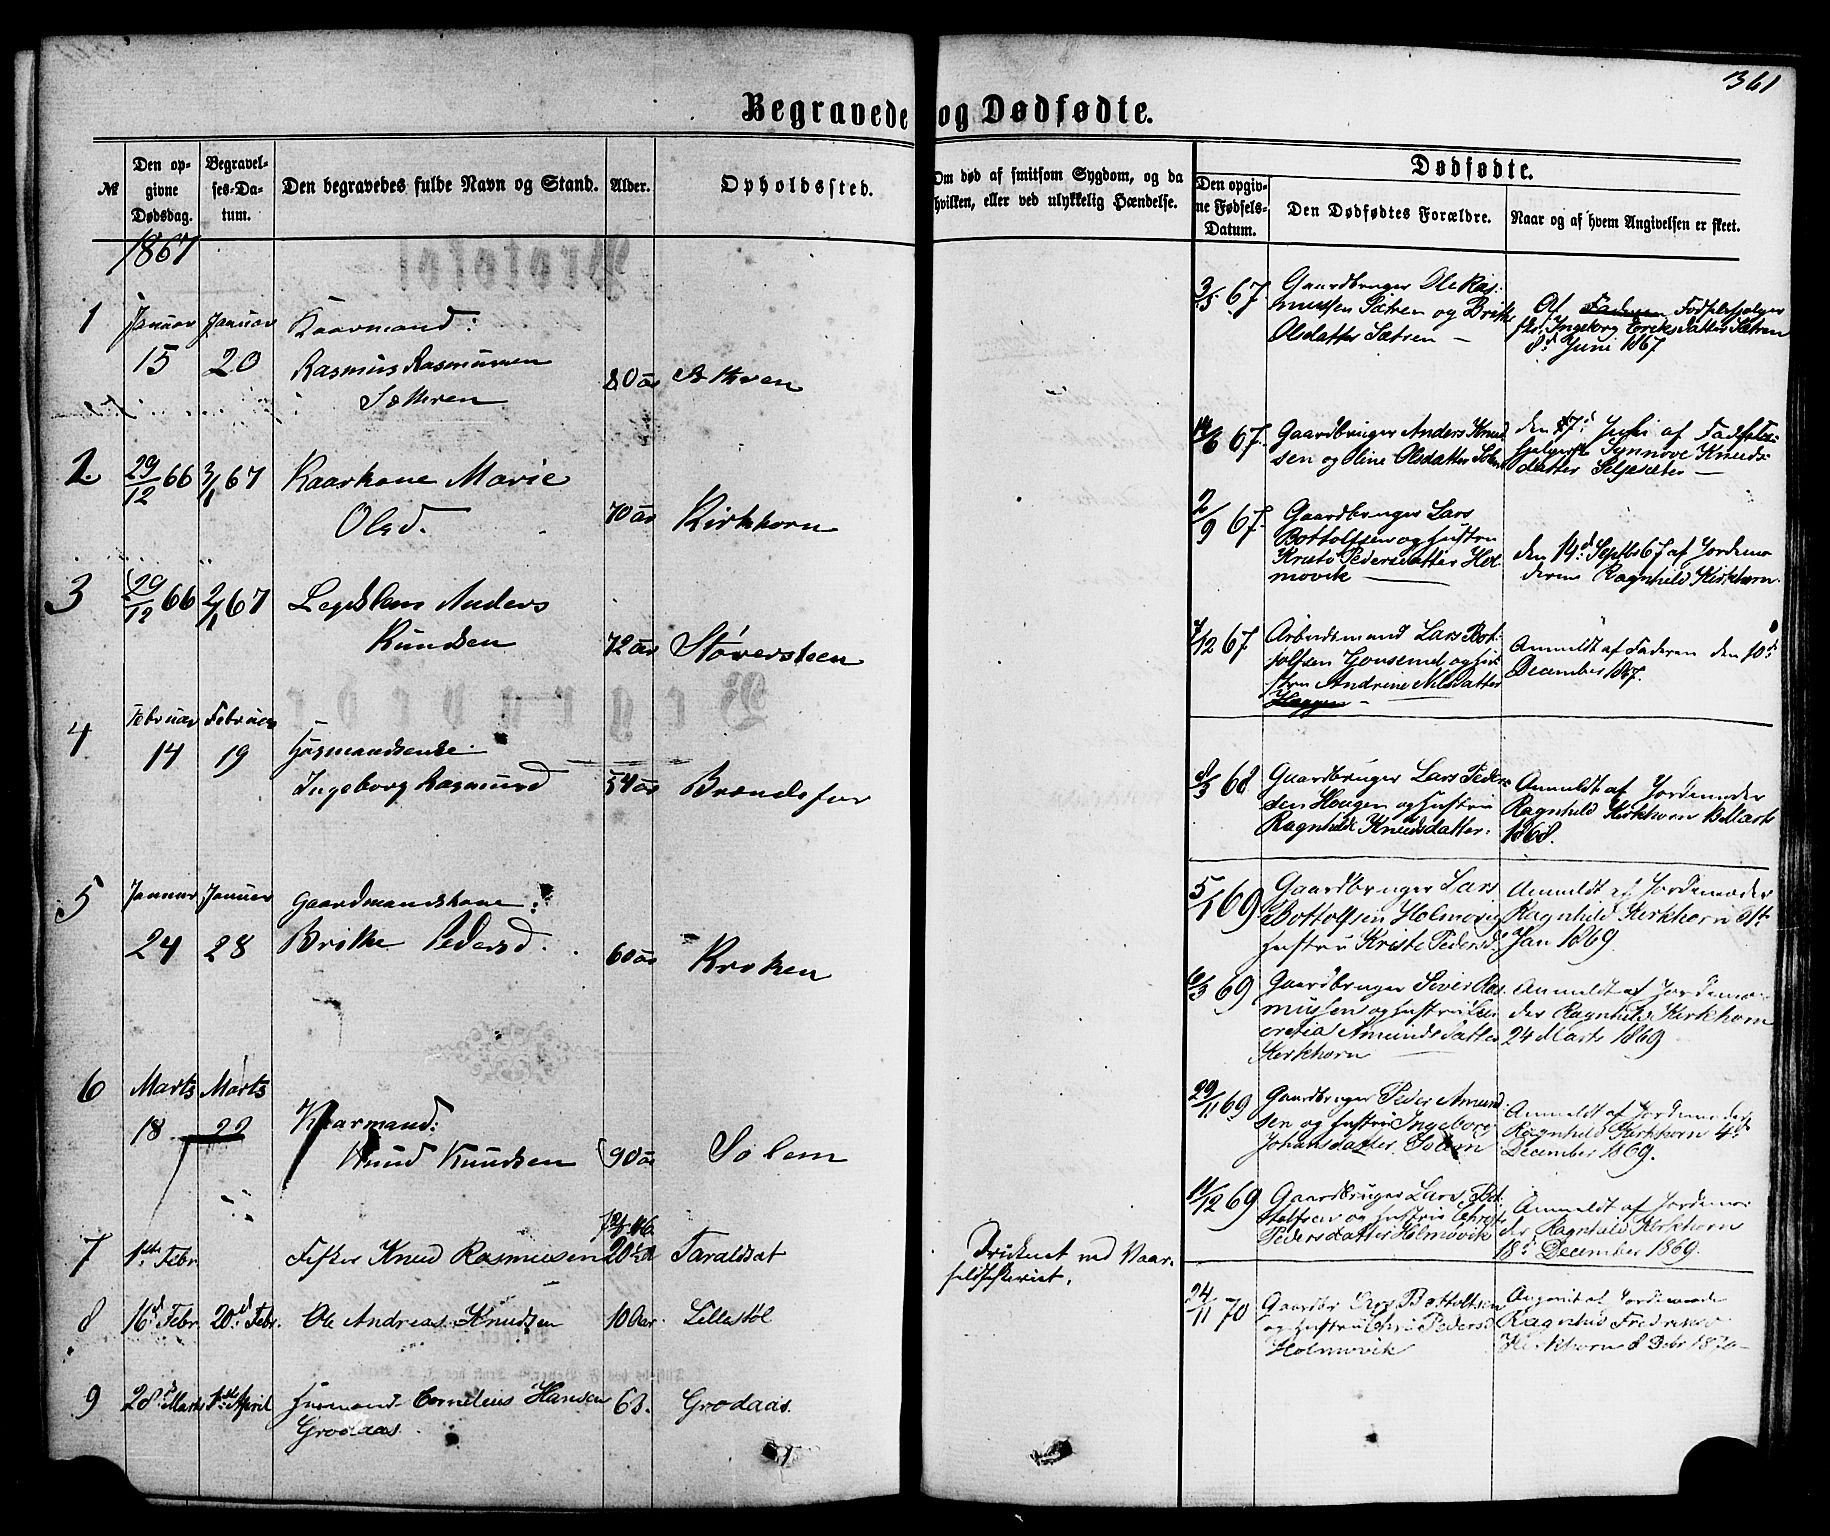 361
Begravede og Dødfødte.
№
Den op-
givne
Dødsdag.
Begravel-
ses-Da-
tum.
Den begravedes fulde Navn og Stand.
Alder.
Opholdssted.
Om død af smitsom Sygdom, og da
hvilken, eller ved ulykkelig Hændelse.
Dødfødte.
Den opgiv-
ne Fødsels-
Datum.
Den Dødfødtes Forældre.
Naar og af hvem Angivelsen er skeet.
1867
1 Januar Januar Kaarmand:
15 20 Rasmus Rasmussen 80 aar
Sætren
2. 29/12 66 3/1 67 Kaarkone Marie
Olsd. 70 aar Kirkhorn
3 29/12 66 2/1 67 Anders
Knudsen 72 aar Støversteen
4 Februar Februar
14 19 Husmandsenke
Ingeborg Rasmusd 54 aar
5 Januar Januar Gaardmandskone:
24 28 Brithe Pedersd. 60 aar Kroken
6 Marts Marts
18 22 Kaarmand:
Knud Knudsen 90 aar Solem
7 1ste Febr Fisker Knud Rasmussen Taraldsæt
Druknet ved Vaar-
sildfiskeriet.
8 16d Febr. 20d Febr. Ole Andreas Knudsen 10 Aar. Lillestøl
9 28d Marts 1ste April Husmand Cornelius Hansen 68. Grodaas.
Grodaas.
3/5 67 Gaardbruger Ole Ras-
mussen Sætren og Brithe
Olsdatter Sætren —
Af Faderen Fødselshjælper-
ske Ingeborg Eriksdatter Sætren
8d Juni 1867
14/6 67. Gaardbruger Anders Knud-
sen og Oline Olsdatter
den 17d af Fødsels-
hjælperske Synnøve Knuds-
datter —
2/9 67. Gaardbruger Lars
Bottolfsen og Hustru
Kristi Pedersdatter Hol-
movik —
den 14d Septb 67 af Jordemo-
deren Ragnhild Kirkhorn.
4/12 67 Arbeidsmand Lars Bot-
tolfsen og Hu-
stru Andrine Nilsdatter
Haugen —
Anmeldt af Faderen den 10d
December 1867.
8/3 68 Gaardbruger Lars Peder-
sen Haugen og Hustru
Ragnhild Knudsdatter.
Anmeldt af Jordemoder
Ragnhild Kirkhorn Marts
1868.
5/1 69 Gaardbruger Lars
Bottolfsen Holmovig
Hustru Kristi Pedersd.
Anmeldt af Jordemoder
Ragnhild Kirkhorn
Jan 1869.
6/3 69 Gaardbruger Siver Ras-
mussen og Hustru Lu-
cretia Amundsdatter
Kirkhorn
Anmeldt af Jordemo-
der Ragnhild Kirkhorn
24 Marts 1869
29/11 69 Gaardbruger Peder Amund-
sen og Hustru Ingeborg
Johansdatter Solem
Anmeldt af Jordemoder
Ragnhild Kirkhorn 4d
December 1869.
11/12 69 Gaardbruger Lars Bot-
tolfsen og Hustru Christi
Pedersdatter Holmovik
Anmeldt af Jordemo-
der Ragnhild Kirkhorn
18d December 1869.
24/11 70 Gaardbr Lars Bottolfsen
og Hustru Chri Pedersd
Holmovik
Angivet af Jordemoder
Ragnhild
Kirkhorn 8 Debr 1870